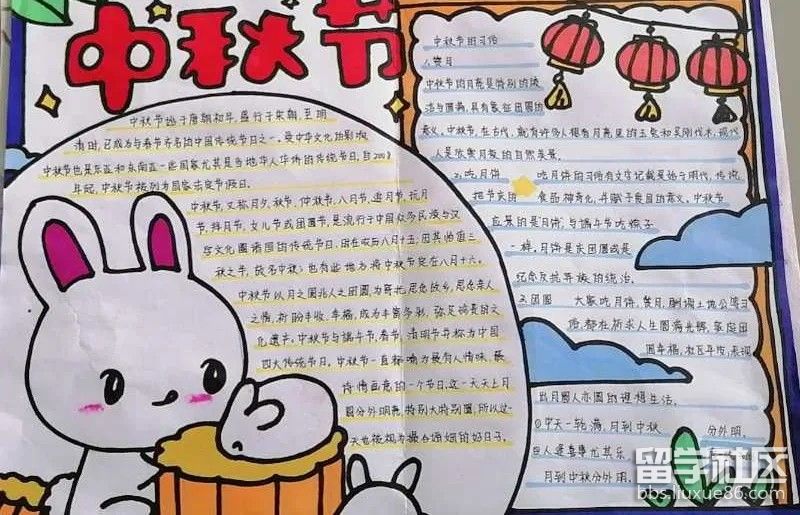 中秋节
中秋节始于唐朝初年,盛行于宋朝,至明
清时,已成为与春节齐名的中国传统节日之一。受中华文化的影响,
中秋节也是东亚和东南亚一些国家尤其是当地华人华侨的传统节日,自2008
年起,中秋节被列为国家法定节假日。
中秋节,又称月夕、秋节、仲秋节、八月节、追月节、玩月
节、拜月节、女儿节或团圆节,是流行于中国众多民族与汉
字文化圈诸国的传统节日,时在农历八月十五;因其恰值三
秋之半,故名中秋,也有些地方将中秋节定在八月十六。
中秋节以月之圆兆人之团圆,为寄托思念故乡,思念亲人
之情,祈盼丰收、幸福,成为丰富多彩、弥足珍贵的文
化遗产。中秋节与端午节、春节、清明节并称为中国
四大传统节日。中秋节一直被喻为最有人情味、最
诗情画意的一个节日,这一天天上月
圆分外明亮,特别大特别圆,所以这一
天也被视为撮合姻缘的好日子。
中秋节的习俗
1、赏月
中秋节的月亮是特别的皎
洁与圆满,具有象征团圆的
意义。中秋节,在古代,就有许多人想有月亮里的玉兔和吴刚伐木,现代
人是欣赏月亮的自然美景。
2、吃月饼 吃月饼的习俗有文字记载是始于明代,传统
把节庆的 食品神奇化,并赋予良目的意义。中秋节
应景的是月饼,与端午节吃粽子
一样,月饼是庆团圆或是
纪念反抗异族的统治。
3、团圆 大家吃月饼、赏月、
,都在祈求人生圆满光辉,家庭团
圆幸福,社区平安,表现
出月圆人亦圆的理想生活。
①中天一轮满,月到中秋 分外明。
月到中秋分外明。
留学社区
bbs.liuxue86.com